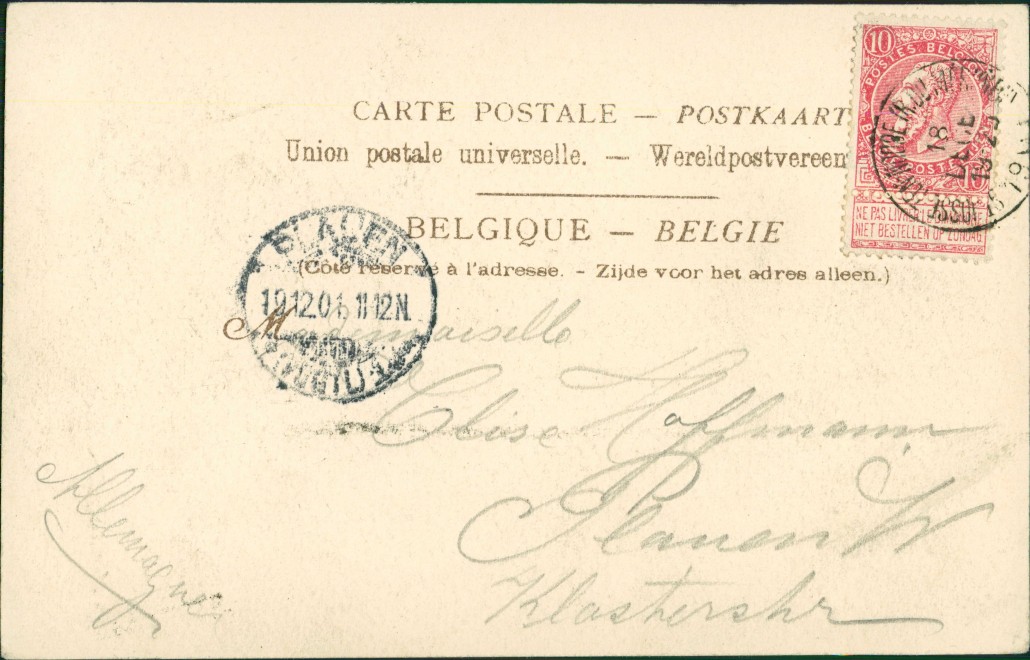 CARTE POSTALE — POSTKAART
Union postale universelle. — Wereldpostvereen
BELGIQUE — BELGIE
(Côté réservé à l'adresse. - Zijde voor het adres alleen.)
10 10
POSTES BELGI
POSTE
10
NE PAS LIVRER LE DIMANCHE
NIET BESTELLEN OP ZONDAG
18
DEC
PLAUEN
19.12.01. 11-12N.
(VOGTL)
Mademoiselle
Elise Hoffmann
Plauen V
Klosterstr
Allemagne